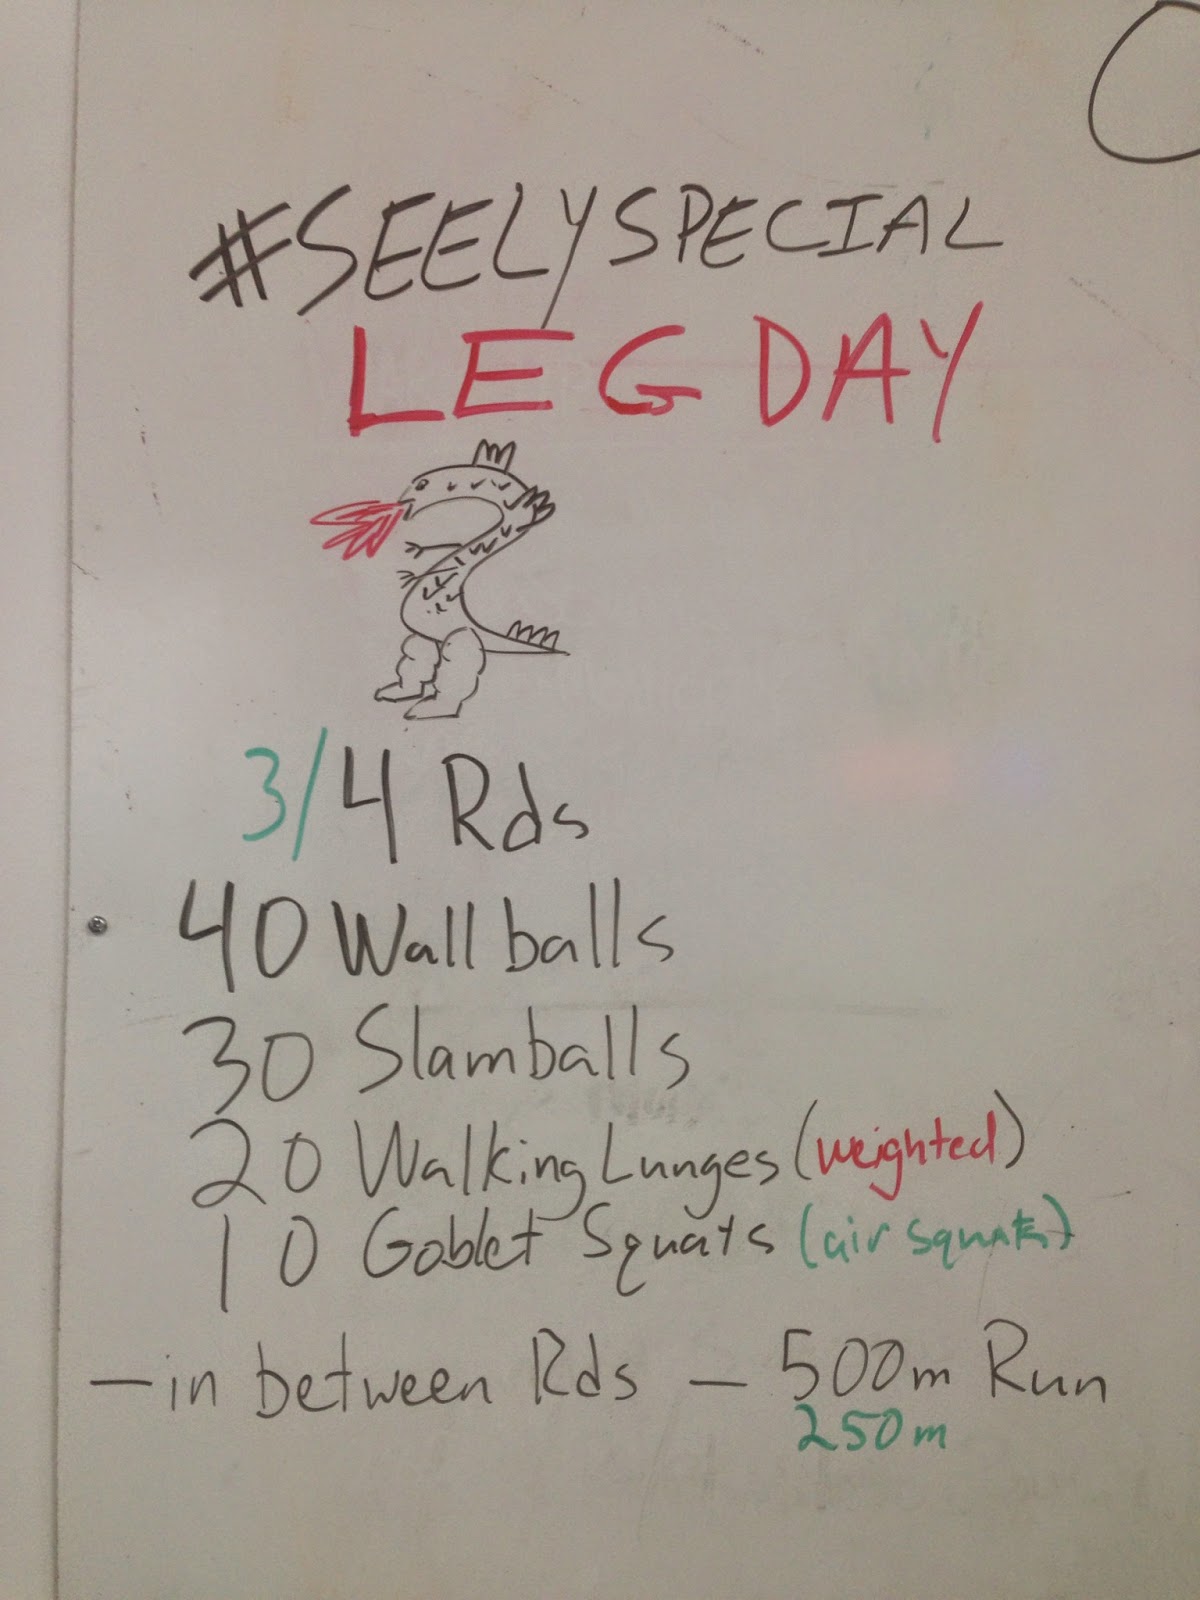 #SEELYSPECIAL
LEG DAY
3/4 Rds
40 Wall balls
30 Slamballs
20 Walking Lunges (weighted)
10 Goblet Squats (air squats)
—in between Rds — 500m Run
250m